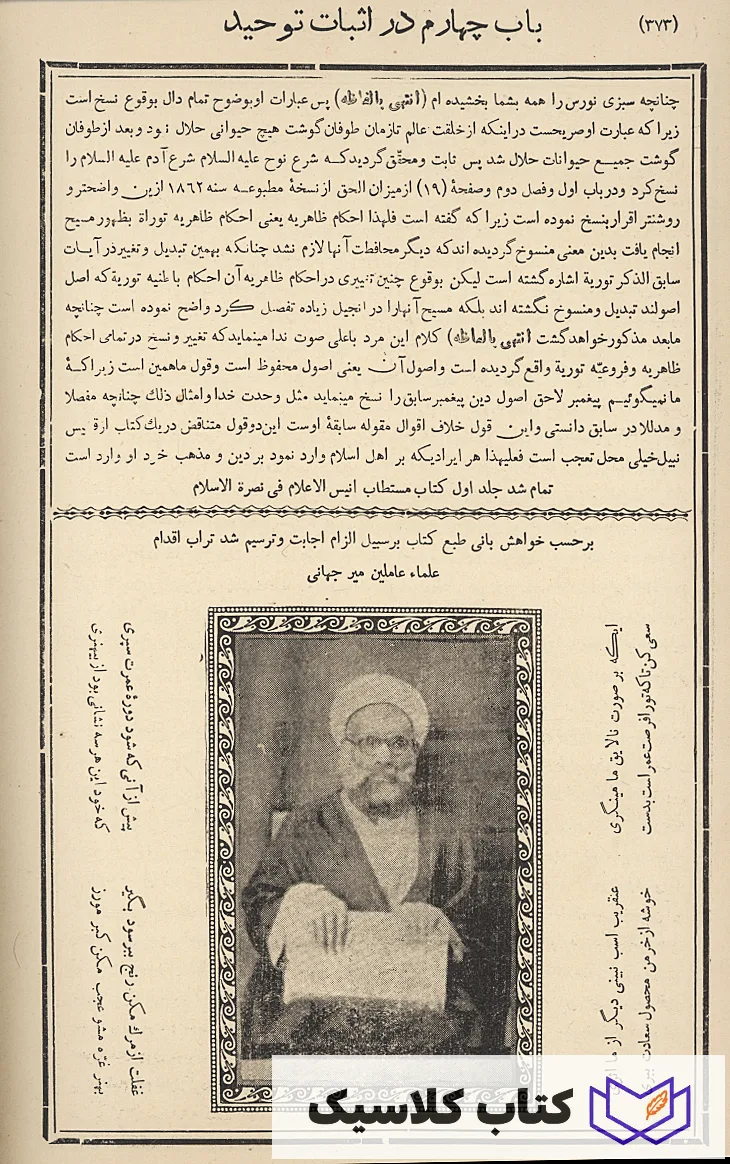 (۳۷۳)
باب چهارم در اثبات توحید
چنانچه سبزی نورس را همه بشما بخشیده ام (انتهی بالفاظه) پس عبارات او بوضوح تمام دال بوقوع نسخ است
زیرا که عبارت او صریحست در اینکه از خلقت عالم تا زمان طوفان گوشت هیچ حیوانی حلال نبود و بعد از طوفان
گوشت جمیع حیوانات حلال شد پس ثابت و محقّق گردید که شرع نوح علیه السلام شرع آدم علیه السلام را
نسخ کرد و در باب اول و فصل دوم و صفحۀ (۱۹) از میزان الحق از نسخۀ مطبوعه سنه ۱۸۶۲ ازین واضحتر و
روشنتر اقرار بنسخ نموده است زیرا که گفته است فلهذا احکام ظاهریه یعنی احکام ظاهریه توراة بظهور مسیح
انجام یافت بدین معنی منسوخ گردیده اند که دیگر محافظت آنها لازم نشد چنانکه بهمین تبدیل و تغییر در آیات
سابق الذکر توریة اشاره گشته است لیکن بوقوع چنین تغییری در احکام ظاهریه آن احکام باطنیه توریة که اصل
اصولند تبدیل و منسوخ نگشته اند بلکه مسیح آنها را در انجیل زیاده تفصیل کرد و واضح نموده است چنانچه
مابعد مذکور خواهد گشت (انتهی بالفاظه) کلام این مرد باعلی صوت ندا مینماید که تغییر و نسخ در تمامی احکام
ظاهریه و فروعیّه توریة واقع گردیده است و اصول آن یعنی اصول محفوظ است و قول ما همین است زیرا که
ما نمیگوئیم پیغمبر لاحق اصول دین پیغمبر سابق را نسخ مینماید مثل وحدت خدا و امثال ذلك چنانچه مفصلا
و مدللا در سابق دانستی و این قول خلاف اقوال مقوله سابقۀ اوست این دو قول متناقض در یك کتاب از قسیس
نبیل خیلی محل تعجب است فعلیهذا هر ایرادیکه بر اهل اسلام وارد نمود بر دین و مذهب خود او وارد است
تمام شد جلد اول کتاب مستطاب انیس الاعلام فی نصرة الاسلام
برحسب خواهش بانی طبع کتاب برسبیل الزام اجابت و ترسیم شد تراب اقدام
علماء عاملین میر جهانی
ایکه بر صورت نالایق ما مینگری
سعی کن تا که تو را فرصت عمر است بدست
عنقریب است نبینی دیگر از ما اثری
خوشه از خرمن محصول سعادت ببری
پیش از آنی که شود دورۀ عمرت سپری
که خود این هر سه نشانی بود از بیهنری
غفلت از مرك مکن رنج ببر سود بگیر
بهنر غرّه مشو عجب مکن کبر مورز
کتاب کلاسیک